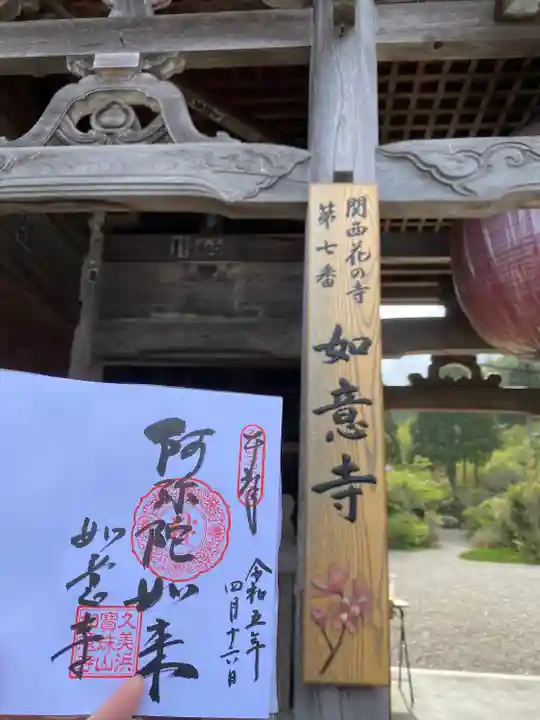 関西花の寺
第七番
如意寺
奉拝
令和五年
四月十六日
阿弥陀如来
如意寺
久美浜
寳珠山
如意寺